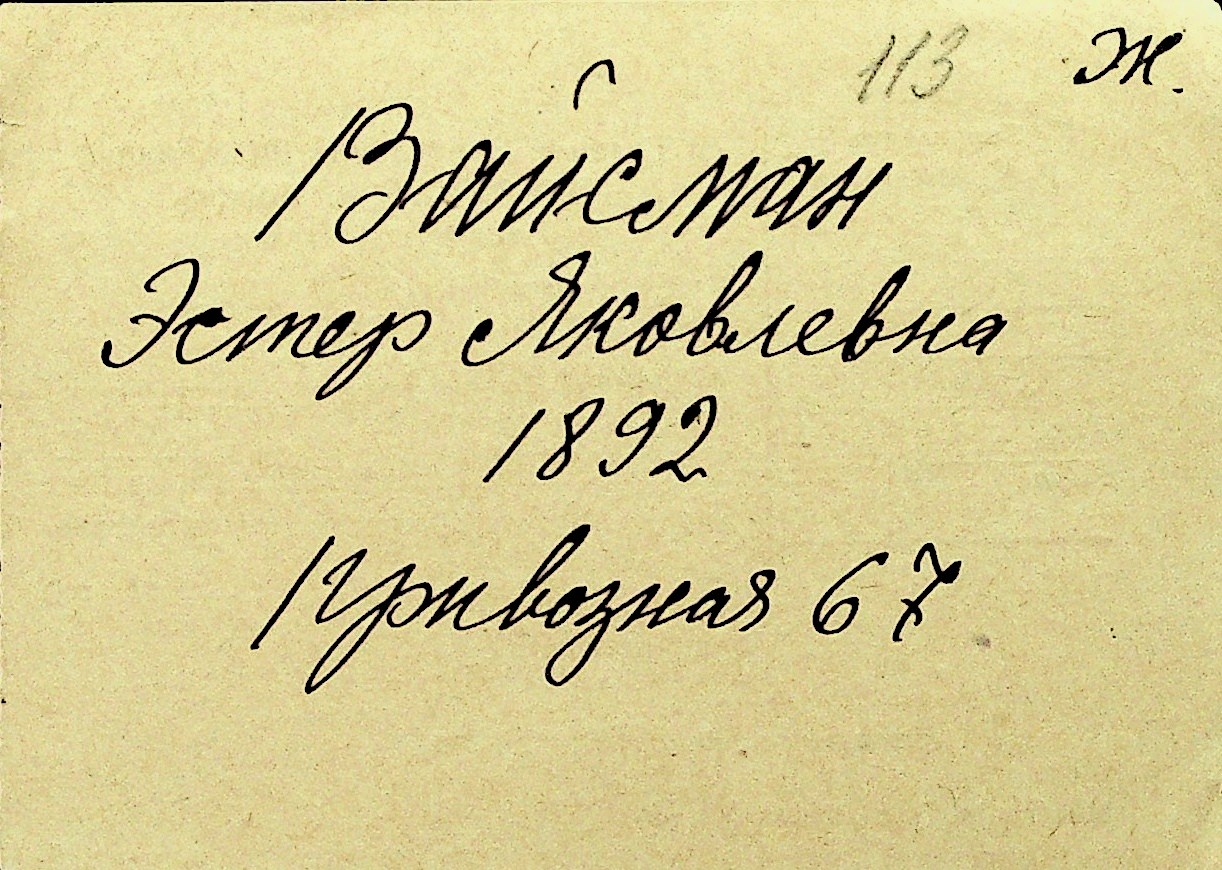 113 Ж.
Вайсман
Эстер Яковлевна
1892
Привозная 67